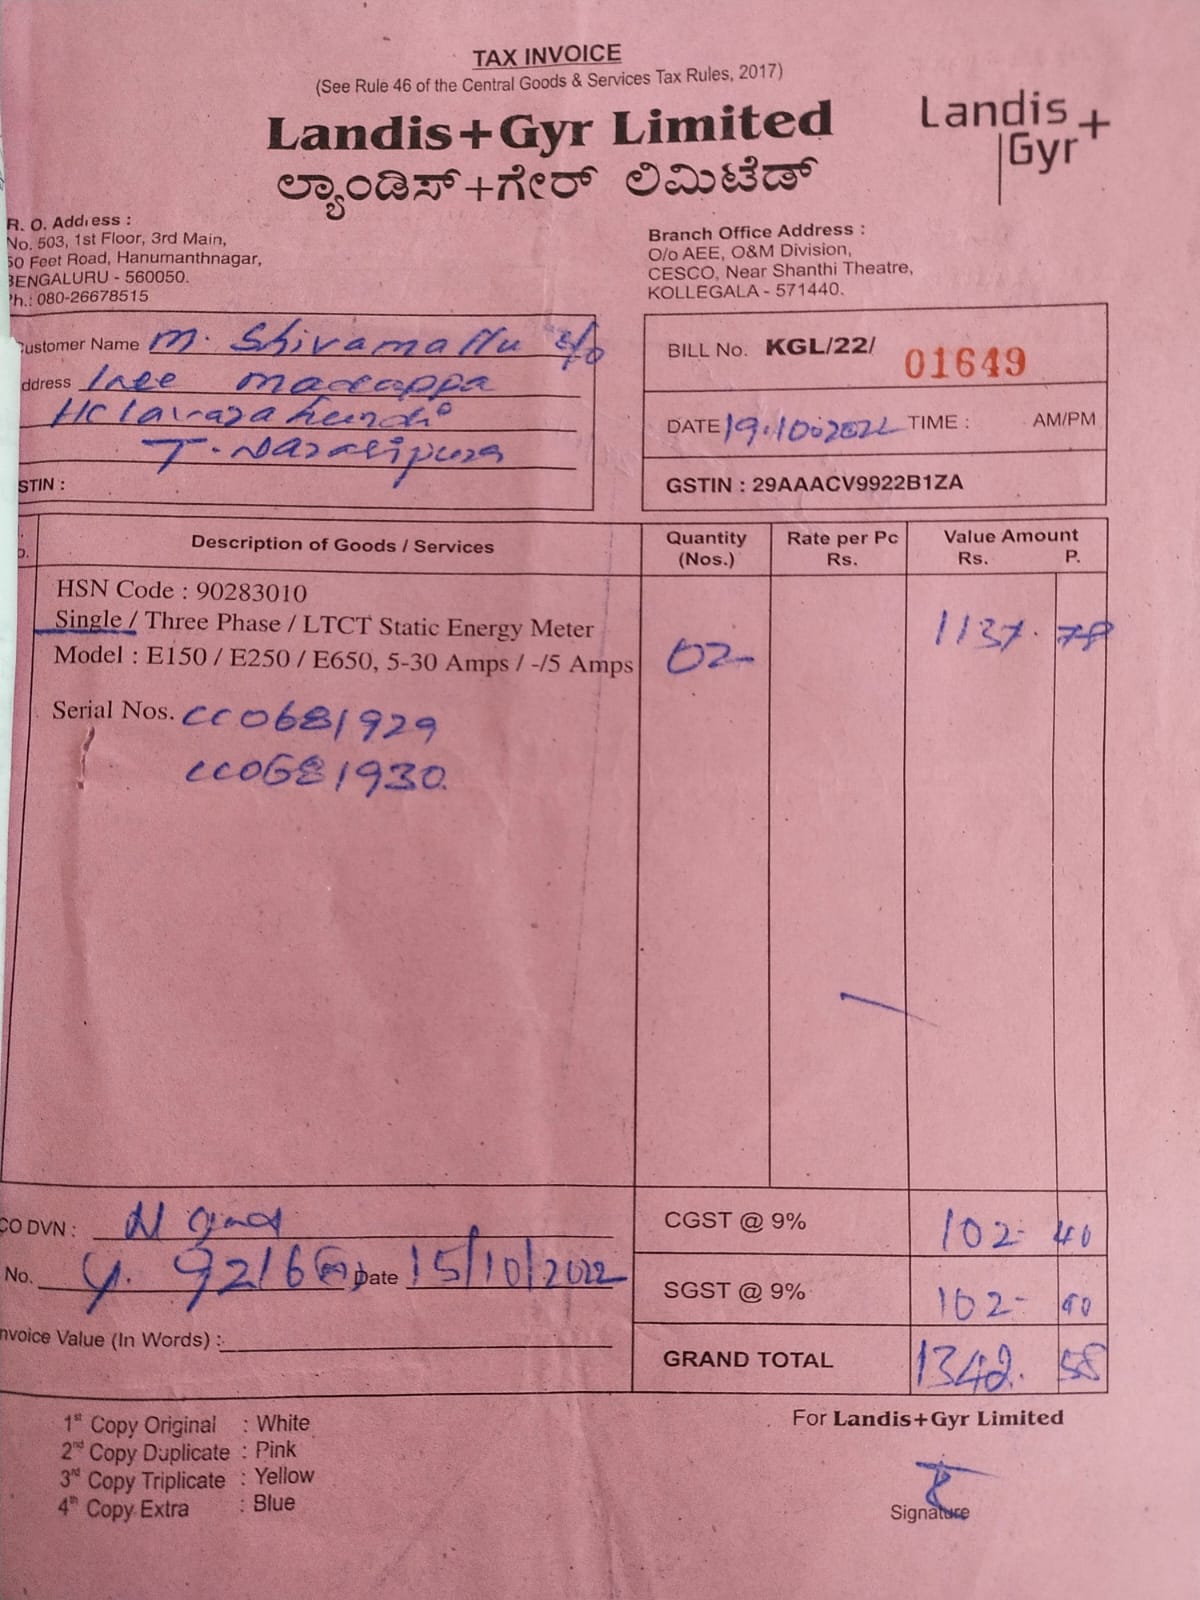 TAX INVOICE
(See Rule 46 of the Central Goods & Services Tax Rules, 2017)
Landis+Gyr Limited
ಲ್ಯಾಂಡಿಸ್+ಗೇರ್ ಲಿಮಿಟೆಡ್
Landis
Gyr+
R. O. Address :
No. 503, 1st Floor, 3rd Main,
50 Feet Road, Hanumanthnagar,
BENGALURU - 560050.
Ph.: 080-26678515
Branch Office Address :
O/o AEE, O&M Division,
CESCO, Near Shanthi Theatre,
KOLLEGALA - 571440.
ustomer Name M. Shivamallu S/o
ddress late madappa
T. Narasipura
STIN :
BILL No. KGL/22/ 01649
DATE 19.10.2022 TIME : AM/PM
GSTIN : 29AAACV9922B1ZA
Description of Goods / Services Quantity (Nos.) Rate per Pc Rs. Value Amount Rs. P.
HSN Code : 90283010
Single / Three Phase / LTCT Static Energy Meter 1137. 78
Model : E150 / E250 / E650, 5-30 Amps / -/5 Amps 02-
Serial Nos. CC0681929
CC0681930.
CO DVN :
No. 9216 Date 15/10/2022
nvoice Value (In Words) :
CGST @ 9% 102- 40
SGST @ 9% 102- 40
GRAND TOTAL 1342. 58
1st Copy Original : White
2nd Copy Duplicate : Pink
3rd Copy Triplicate : Yellow
4th Copy Extra : Blue
For Landis+Gyr Limited
Signature